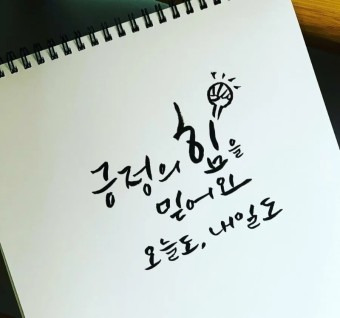 긍정의 힘을
믿어와
오늘도, 내일도